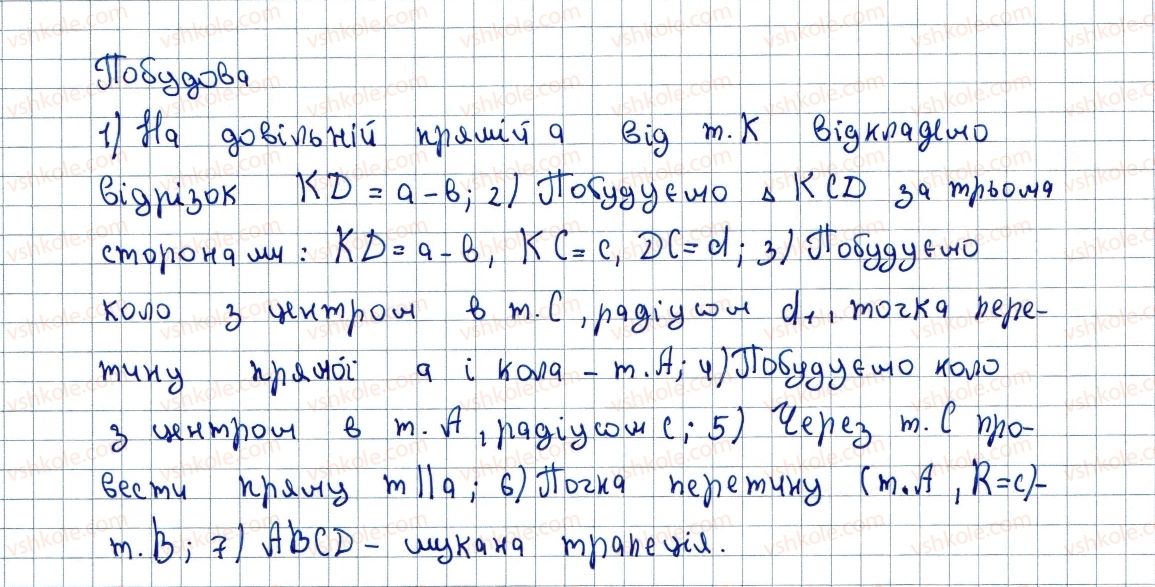 Побудова
1) На довільній прямій а від т. К відкладемо
відрізок KD = a - b; 2) Побудуємо Δ KCD за трьома
сторонами: KD = a - b, KC = c, DC = d; 3) Побудуємо
коло з центром в т. С, радіусом d₁, точка пере-
тину прямої а і кола – т. А; 4) Побудуємо коло
з центром в т. А, радіусом с; 5) Через т. С про-
вести пряму m || a; 6) Точка перетину (т. А, R = c) –
т. В; 7) ABCD – шукана трапеція.